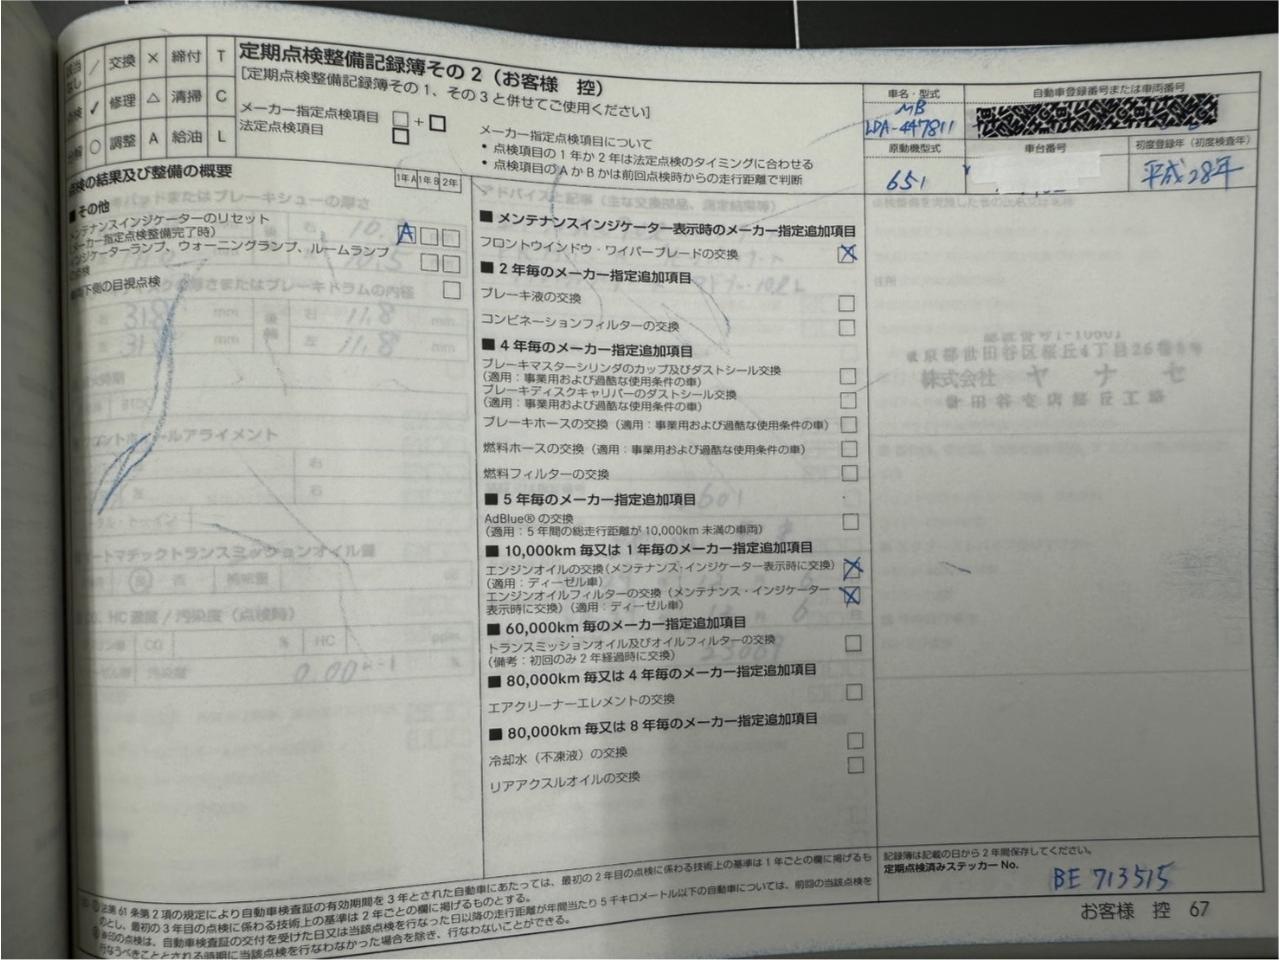 交換 × 締付 T
修理 △ 清掃 C
調整 A 給油 L
定期点検整備記録簿その2(お客様 控)
[定期点検整備記録簿その1、その3と併せてご使用ください]
メーカー指定点検項目 □+□
法定点検項目 □
メーカー指定点検項目について
• 点検項目の1年か2年は法定点検のタイミングに合わせる
• 点検項目のAかBかは前回点検時からの走行距離で判断
車名・型式
MB
LDA-447811
自動車登録番号または車両番号
原動機型式
651
車台番号
初度登録年(初度検査年)
平成28年
点検の結果及び整備の概要
1年A 1年B 2年
■ その他
メンテナンスインジケーターのリセット
メーカー指定点検整備完了時)
A
ンジケーターランプ、ウォーニングランプ、ルームランプ
下側の目視点検
■ メンテナンスインジケーター表示時のメーカー指定追加項目
フロントウインドウ・ワイパーブレードの交換
■ 2年毎のメーカー指定追加項目
ブレーキ液の交換
コンビネーションフィルターの交換
■ 4年毎のメーカー指定追加項目
ブレーキマスターシリンダのカップ及びダストシール交換
(適用:事業用および過酷な使用条件の車)
ブレーキディスクキャリパーのダストシール交換
(適用:事業用および過酷な使用条件の車)
ブレーキホースの交換(適用:事業用および過酷な使用条件の車)
燃料ホースの交換(適用:事業用および過酷な使用条件の車)
燃料フィルターの交換
■ 5年毎のメーカー指定追加項目
AdBlue®の交換
(適用:5年間の総走行距離が10,000km未満の車両)
■ 10,000km毎又は1年毎のメーカー指定追加項目
エンジンオイルの交換(メンテナンス・インジケーター表示時に交換)
(適用:ディーゼル車)
エンジンオイルフィルターの交換(メンテナンス・インジケーター
表示時に交換)(適用:ディーゼル車)
■ 60,000km毎のメーカー指定追加項目
トランスミッションオイル及びオイルフィルターの交換
(備考:初回のみ2年経過時に交換)
■ 80,000km毎又は4年毎のメーカー指定追加項目
エアクリーナーエレメントの交換
■ 80,000km毎又は8年毎のメーカー指定追加項目
冷却水(不凍液)の交換
リアアクスルオイルの交換
東京都世田谷区桜丘4丁目26番8号
株式会社 ヤナセ
法第61条第2項の規定により自動車検査証の有効期間を3年とされた自動車にあたっては、最初の2年目の点検に係わる技術上の基準は1年ごとの欄に掲げるも
のとし、最初の3年目の点検に係わる技術上の基準は2年ごとの欄に掲げるものとする。
印の点検は、自動車検査証の交付を受けた日又は当該点検を行なった日以降の走行距離が年間当たり5千キロメートル以下の自動車については、前回の当該点検を
行なうべきこととされる時期に当該点検を行なわなかった場合を除き、行なわないことができる。
記録簿は記載の日から2年間保存してください。
定期点検済みステッカーNo.
BE 713515
お客様 控 67